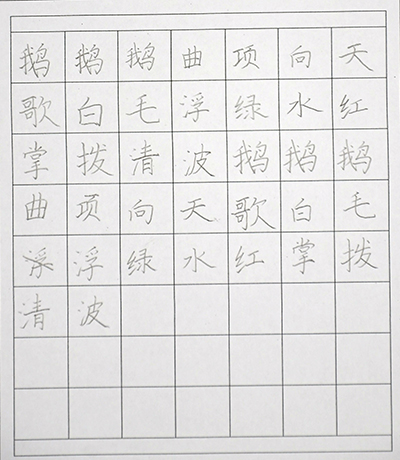 鹅鹅鹅曲项向天
歌白毛浮绿水红
掌拨清波鹅鹅鹅
曲项向天歌白毛
浮浮绿水红掌拨
清波